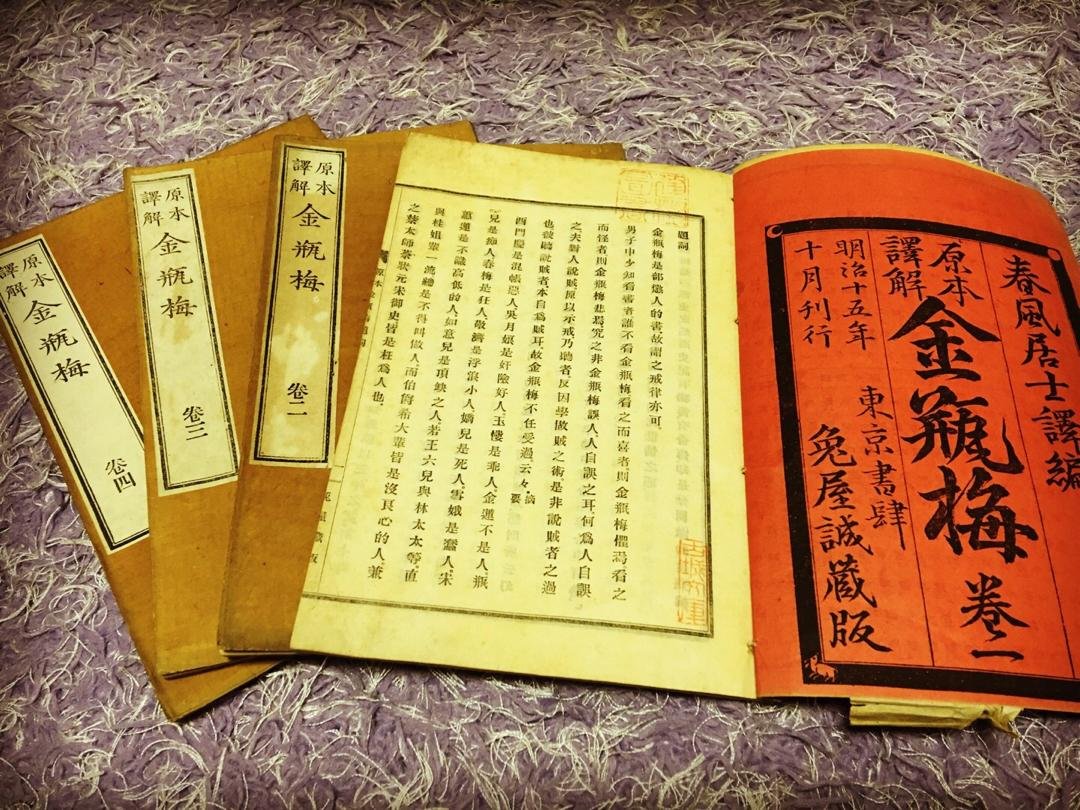 春風居士譯編
原本
譯解
金瓶梅
東京書肆
兔屋誠藏版
明治十五年
十月刊行
題詞
金瓶梅是部懲人的書、故謂之戒律亦可、
男子中少知看書者誰不看金瓶梅看之而喜者、則金瓶梅懼焉、看之
而怪者則金瓶梅悲焉、究之非金瓶梅誤人、人自誤之耳、何爲人自誤
之夫對人說賊原以示戒乃聽者、反因學做賊之術、是非說賊者之過
也彼聽說賊者、本自爲賊耳、故金瓶梅不任受過云々、摘要
西門慶是混帳惡人、吳月娘是奸險好人、玉樓是乖人、金蓮不是人、瓶
兒是痴人、春梅是狂人、敬濟是浮浪小人、嬌兒是死人、雪娥是蠢人、宋
蕙蓮是不識高低的人、如意兒是頂缺之人、若王六兒與林太太等、直
與桂姐輩一流、總是不得叫做人、而伯爵希大輩皆是沒良心的人、兼
之蔡太師蔡狀元宋御史皆是枉爲人也、
原本
譯解
金瓶梅
卷二
原本
譯解
金瓶梅
卷三
原本
譯解
金瓶梅
卷四